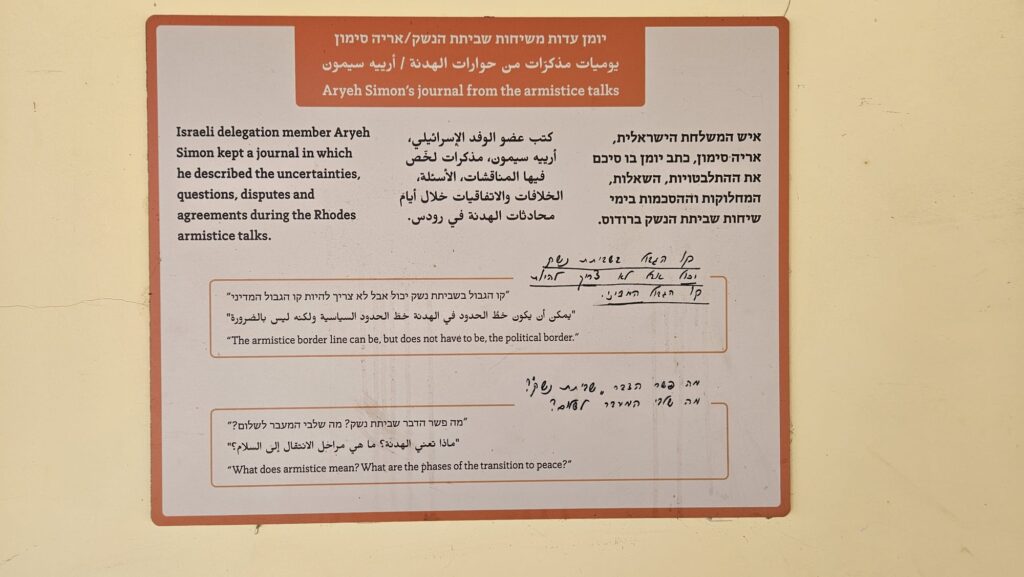 יומן עדות משיחות שביתת הנשק/אריה סימון
يوميات مذكرات من حوارات الهدنة / أرييه سيمون
Aryeh Simon's journal from the armistice talks
Israeli delegation member Aryeh
Simon kept a journal in which
he described the uncertainties,
questions, disputes and
agreements during the Rhodes
armistice talks.
كتب عضو الوفد الإسرائيلي،
أرييه سيمون، مذكرات لخّص
فيها المناقشات، الأسئلة،
الخلافات والاتفاقيات خلال أيام
محادثات الهدنة في رودس.
איש המשלחת הישראלית,
אריה סימון, כתב יומן בו סיכם
את ההתלבטויות, השאלות,
המחלוקות וההסכמות בימי
שיחות שביתת הנשק ברודוס.
קו הגבול בשביתת נשק
יכול אבל לא צריך להיות
קו הגבול המדיני.
"קו הגבול בשביתת נשק יכול אבל לא צריך להיות קו הגבול המדיני"
"يمكن أن يكون خطّ الحدود في الهدنة خطّ الحدود السياسية ولكنه ليس بالضرورة"
"The armistice border line can be, but does not have to be, the political border."
מה פשר הדבר "שביתת נשק"?
מה שלבי המעבר לשלום?
"מה פשר הדבר שביתת נשק? מה שלבי המעבר לשלום?"
"ماذا تعني الهدنة؟ ما هي مراحل الانتقال إلى السلام؟"
"What does armistice mean? What are the phases of the transition to peace?"